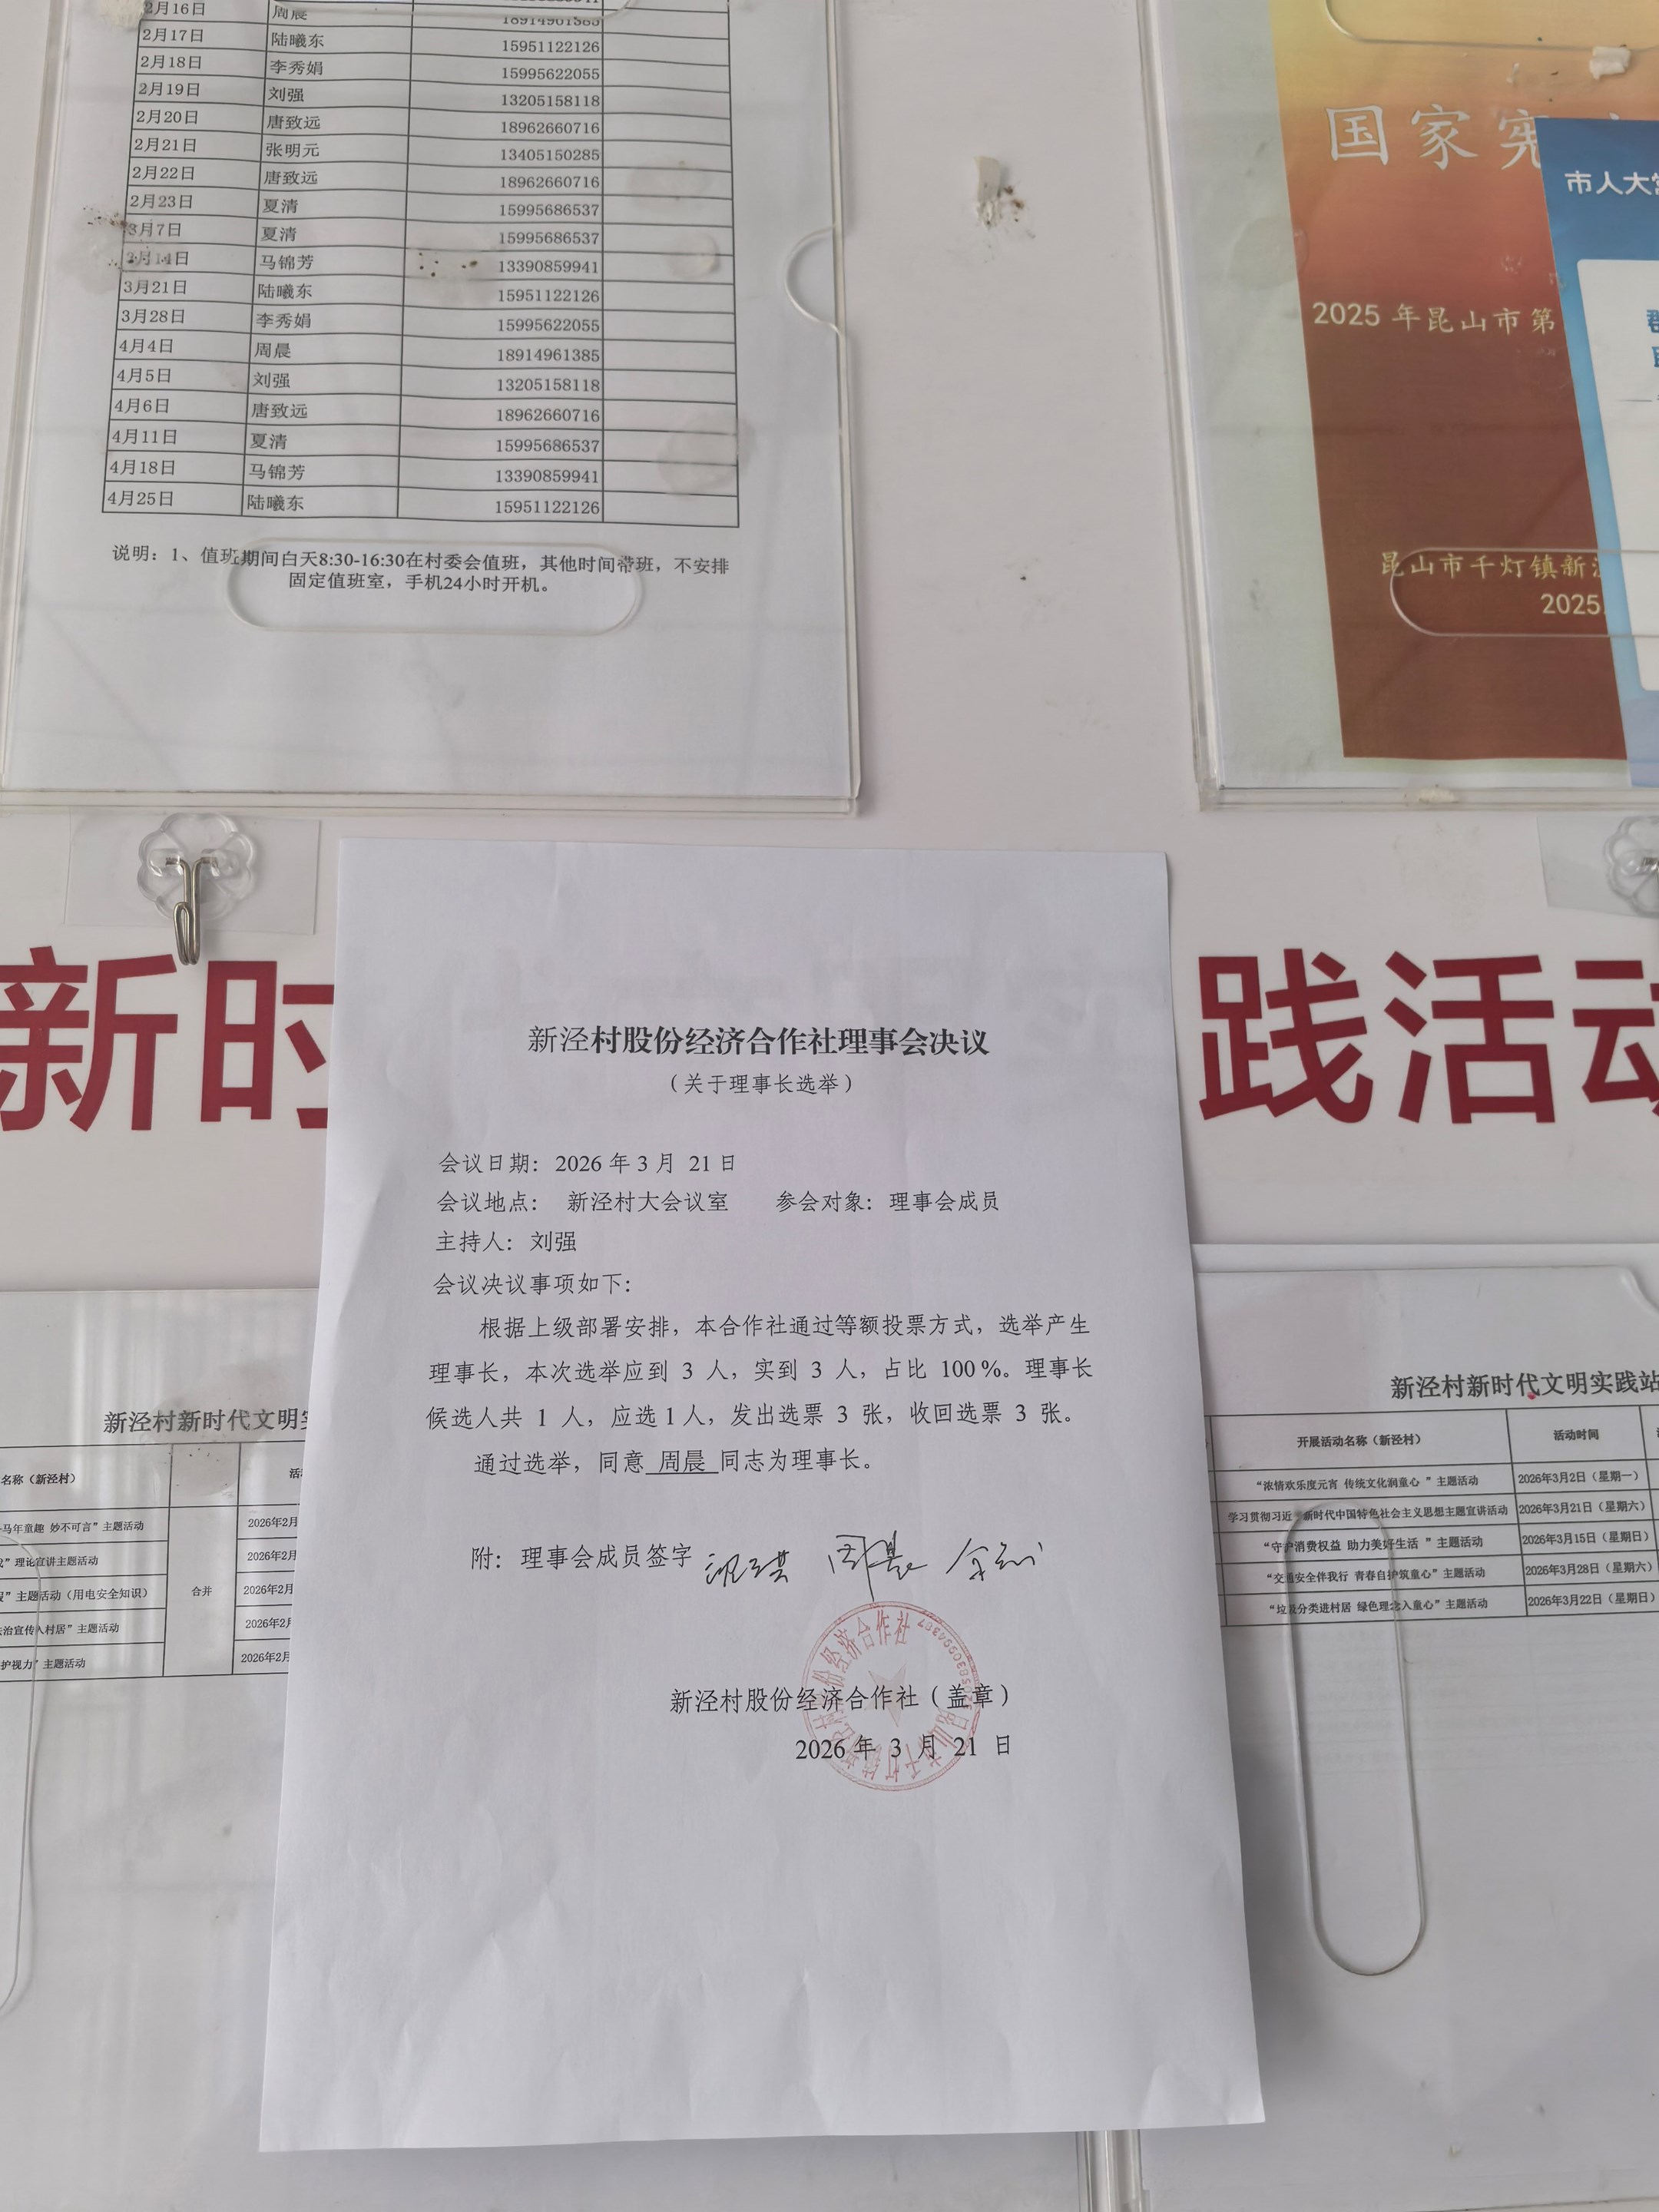 2月16日 周晨 18914961385
2月17日 陆曦东 15951122126
2月18日 李秀娟 15995622055
2月19日 刘强 13205158118
2月20日 唐致远 18962660716
2月21日 张明元 13405150285
2月22日 唐致远 18962660716
2月23日 夏清 15995686537
3月7日 夏清 15995686537
3月14日 马锦芳 13390859941
3月21日 陆曦东 15951122126
3月28日 李秀娟 15995622055
4月4日 周晨 18914961385
4月5日 刘强 13205158118
4月6日 唐致远 18962660716
4月11日 夏清 15995686537
4月18日 马锦芳 13390859941
4月25日 陆曦东 15951122126
说明：1、值班期间白天8:30-16:30在村委会值班，其他时间带班，不安排
固定值班室，手机24小时开机。
国家宪
市人大
2025 年昆山市第
昆山市千灯镇新
2025
新时
践活动
新泾村股份经济合作社理事会决议
（关于理事长选举）
会议日期：2026 年 3 月 21 日
会议地点： 新泾村大会议室 参会对象：理事会成员
主持人：刘强
会议决议事项如下：
根据上级部署安排，本合作社通过等额投票方式，选举产生
理事长，本次选举应到 3 人，实到 3 人，占比 100%。理事长
候选人共 1 人，应选 1 人，发出选票 3 张，收回选票 3 张。
通过选举，同意 周晨 同志为理事长。
附：理事会成员签字
周晨
新泾村股份经济合作社（盖章）
2026 年 3 月 21 日
新泾村新时代文明实
名称（新泾村）
马年童趣 妙不可言”主题活动 2026年2月
”理论宣讲主题活动 2026年2月
”主题活动（用电安全知识） 合并 2026年2月
法治宣传入村居”主题活动 2026年2月
护视力”主题活动 2026年2月
新泾村新时代文明实践站
开展活动名称（新泾村） 活动时间
“浓情欢乐度元宵 传统文化润童心 ”主题活动 2026年3月2日（星期一）
学习贯彻习近 新时代中国特色社会主义思想主题宣讲活动 2026年3月21日（星期六）
“守护消费权益 助力美好生活 ”主题活动 2026年3月15日（星期日）
“交通安全伴我行 青春自护筑童心”主题活动 2026年3月28日（星期六）
“垃圾分类进村居 绿色理念入童心”主题活动 2026年3月22日（星期日）